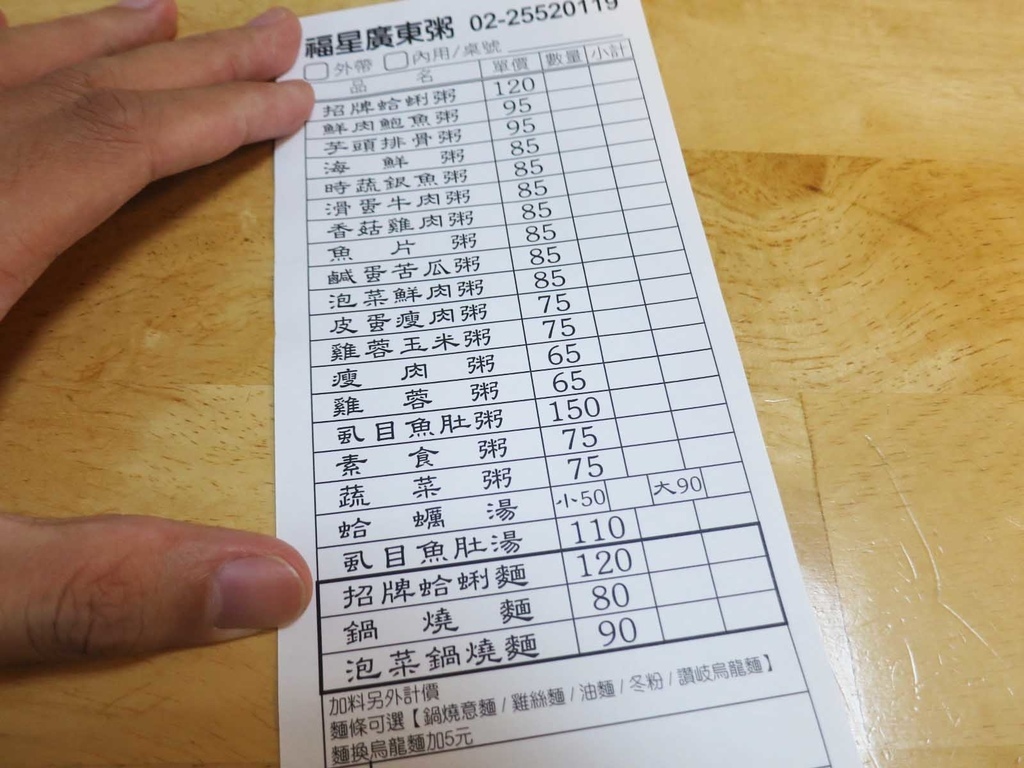 福星廣東粥 02-25520119
外帶 內用/桌號
品名 單價 數量 小計
招牌蛤蜊粥 120
鮮肉鮑魚粥 95
芋頭排骨粥 95
海鮮粥 85
時蔬銀魚粥 85
滑蛋牛肉粥 85
香菇雞肉粥 85
魚片粥 85
鹹蛋苦瓜粥 85
泡菜鮮肉粥 85
皮蛋瘦肉粥 75
雞蓉玉米粥 75
瘦肉粥 65
雞蓉粥 65
虱目魚肚粥 150
素食粥 75
蔬菜粥 75
蛤蠣湯 小50 大90
虱目魚肚湯 110
招牌蛤蜊麵 120
鍋燒麵 80
泡菜鍋燒麵 90
加料另外計價
麵條可選【鍋燒意麵/雞絲麵/油麵/冬粉/讚岐烏龍麵】
麵換烏龍麵加5元